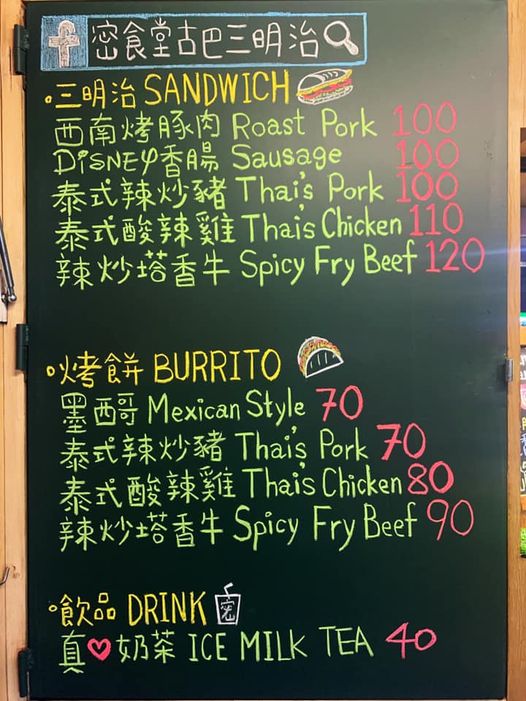 密食堂古巴三明治
三明治 SANDWICH
西南烤豚肉 Roast Pork 100
DiSNEY香腸 Sausage 100
泰式辣炒豬 Thai's Pork 100
泰式酸辣雞 Thai's Chicken 110
辣炒塔香牛 Spicy Fry Beef 120
烤餅 BURRITO
墨西哥 Mexican Style 70
泰式辣炒豬 Thai's Pork 70
泰式酸辣雞 Thai's Chicken 80
辣炒塔香牛 Spicy Fry Beef 90
飲品 DRINK 密
真♡奶茶 ICE MILK TEA 40